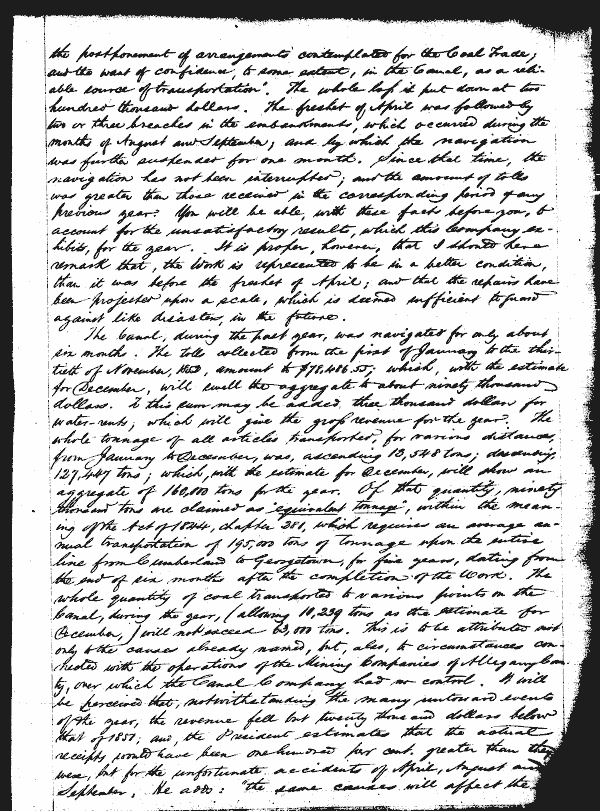 the postponement of arrangements contemplated for the Coal Trade;
and the want of confidence, to some extent, in the Canal, as a reli-
able source of transportation. The whole loss is put down at two
hundred thousand dollars. The freshet of April was followed by
two or three breaches in the embankments, which occurred during the
months of August and September; and by which the navigation
was further suspended for one month. Since that time, the
navigation has not been interrupted; and the amount of tolls
was greater than those received in the corresponding period of any
previous year. You will be able, with these facts before you, to
account for the unsatisfactory results, which this Company ex-
hibits, for the year. It is proper, however, that I should here
remark that, the Work is represented to be in a better condition,
than it was before the freshet of April; and that the repairs have
been projected upon a scale, which is deemed sufficient to guard
against like disaster, in the future.
The Canal, during the past year, was navigated for only about
six months. The tolls collected from the first of January to the thir-
tieth of November, 1852, amount to $78,486.55; which, with the estimate
for December, will swell the aggregate to about ninety thousand
dollars. To this sum may be added, three thousand dollars for
water-rents; which will give the gross revenue for the year. The
whole tonnage of all articles transported, for various distances,
from January to December, was, ascending 13,548 tons; descending
127,447 tons; which, with the estimate for December, will show an
aggregate of 160,000 tons for the year. Of that quantity, ninety
thousand tons are claimed as "equivalent tonnage", within the mean-
ing of the Act of 1844, chapter 281, which requires an average an-
nual transportation of 195,000 tons of tonnage upon the entire
line from Cumberland to Georgetown, for five years, dating from
the end of six months after the completion of the Work. The
whole quantity of coal transported to various points on the
Canal, during the year, (allowing 10,239 tons as the estimate for
December,) will not exceed 63,000 tons. This is to be attributed not
only to the causes already named, but, also, to circumstances con-
nected with the operations of the Mining Companies of Allegany Coun-
ty, over which the Canal Company had no control. It will
be perceived that, notwithstanding the many untoward events
of the year, the revenue fell but twenty thousand dollars below
that of 1851; and, the President estimates that the actual
receipts would have been one hundred per cent. greater than they
were, but for the unfortunate accidents of April, August and
September. He adds: "the same causes will affect the